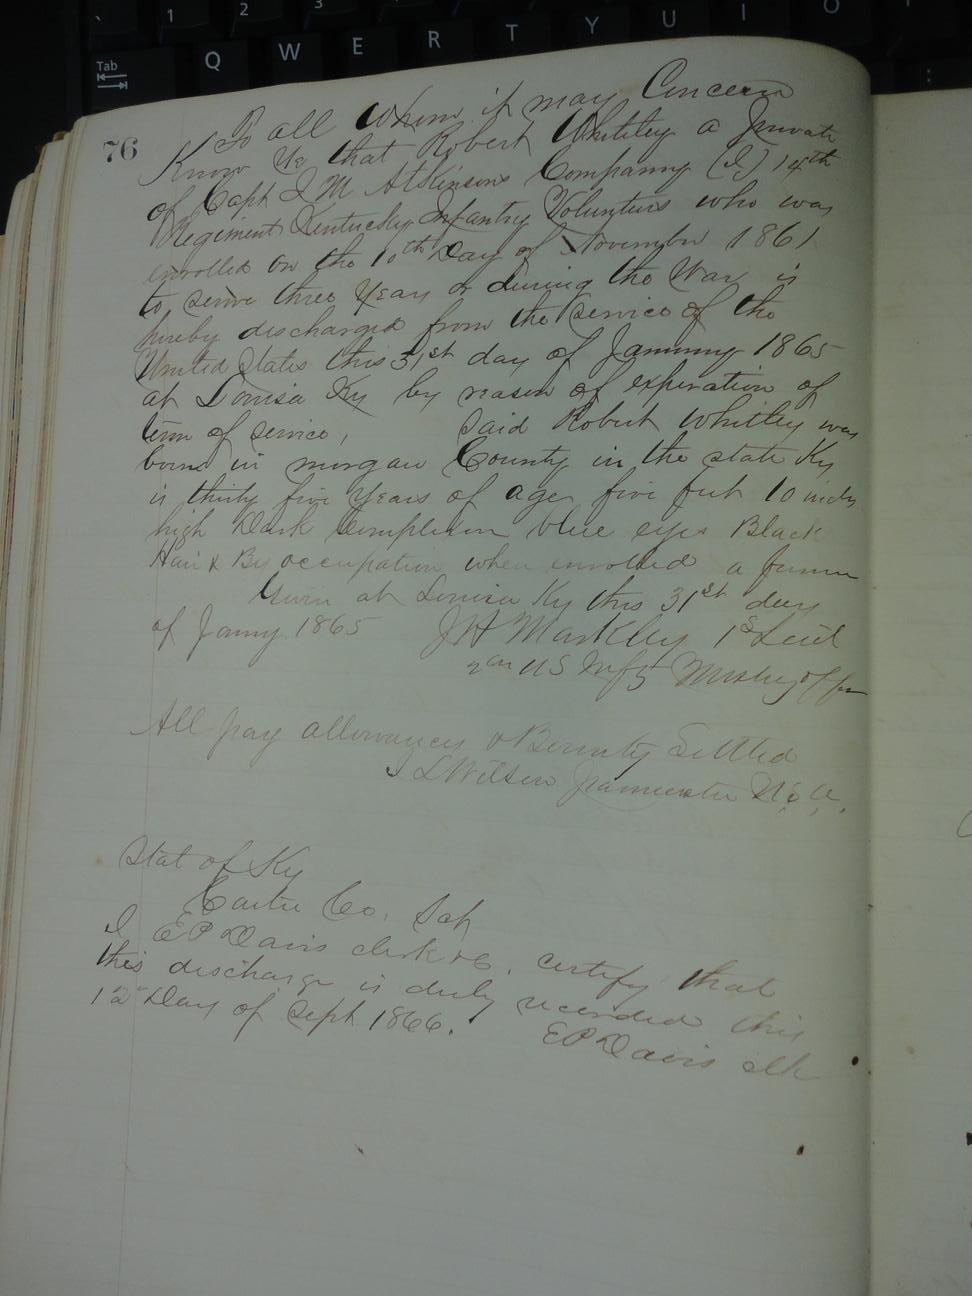 Tab
Q W E R T Y U I O
76
To all Whom it may Concern
Know Ye that Robert Whitley a private
of Capt I M Atkinsons Company (I) 14th
Regiment Kentucky Infantry Voluntirs who was
enrolled on the 10th Day of November 1861
to serve three Years or during the War is
hereby discharged from the service of the
United States this 31st day of January 1865
at Louisa Ky by reason of experation of
term of service, Said Robert Whitley was
born in morgan County in the state Ky
is thirty five Years of age five feet 10 inches
high Dark Complexion blue eyes Black
Hair & By occupation when enrolled a farmer
Given at Louisa Ky this 31st day
of Jany 1865 J H Markley 1st Lieut
2nd US Infy Mustg offr
All pay allowances & Bounty Settled
Wilson Paymaster U.S.A.
Stat of Ky
Carter Co. Sct
I E P Davis clerk &c. certify that
this discharge is duly recorded this
12 Day of Sept 1866.
E P Davis clk